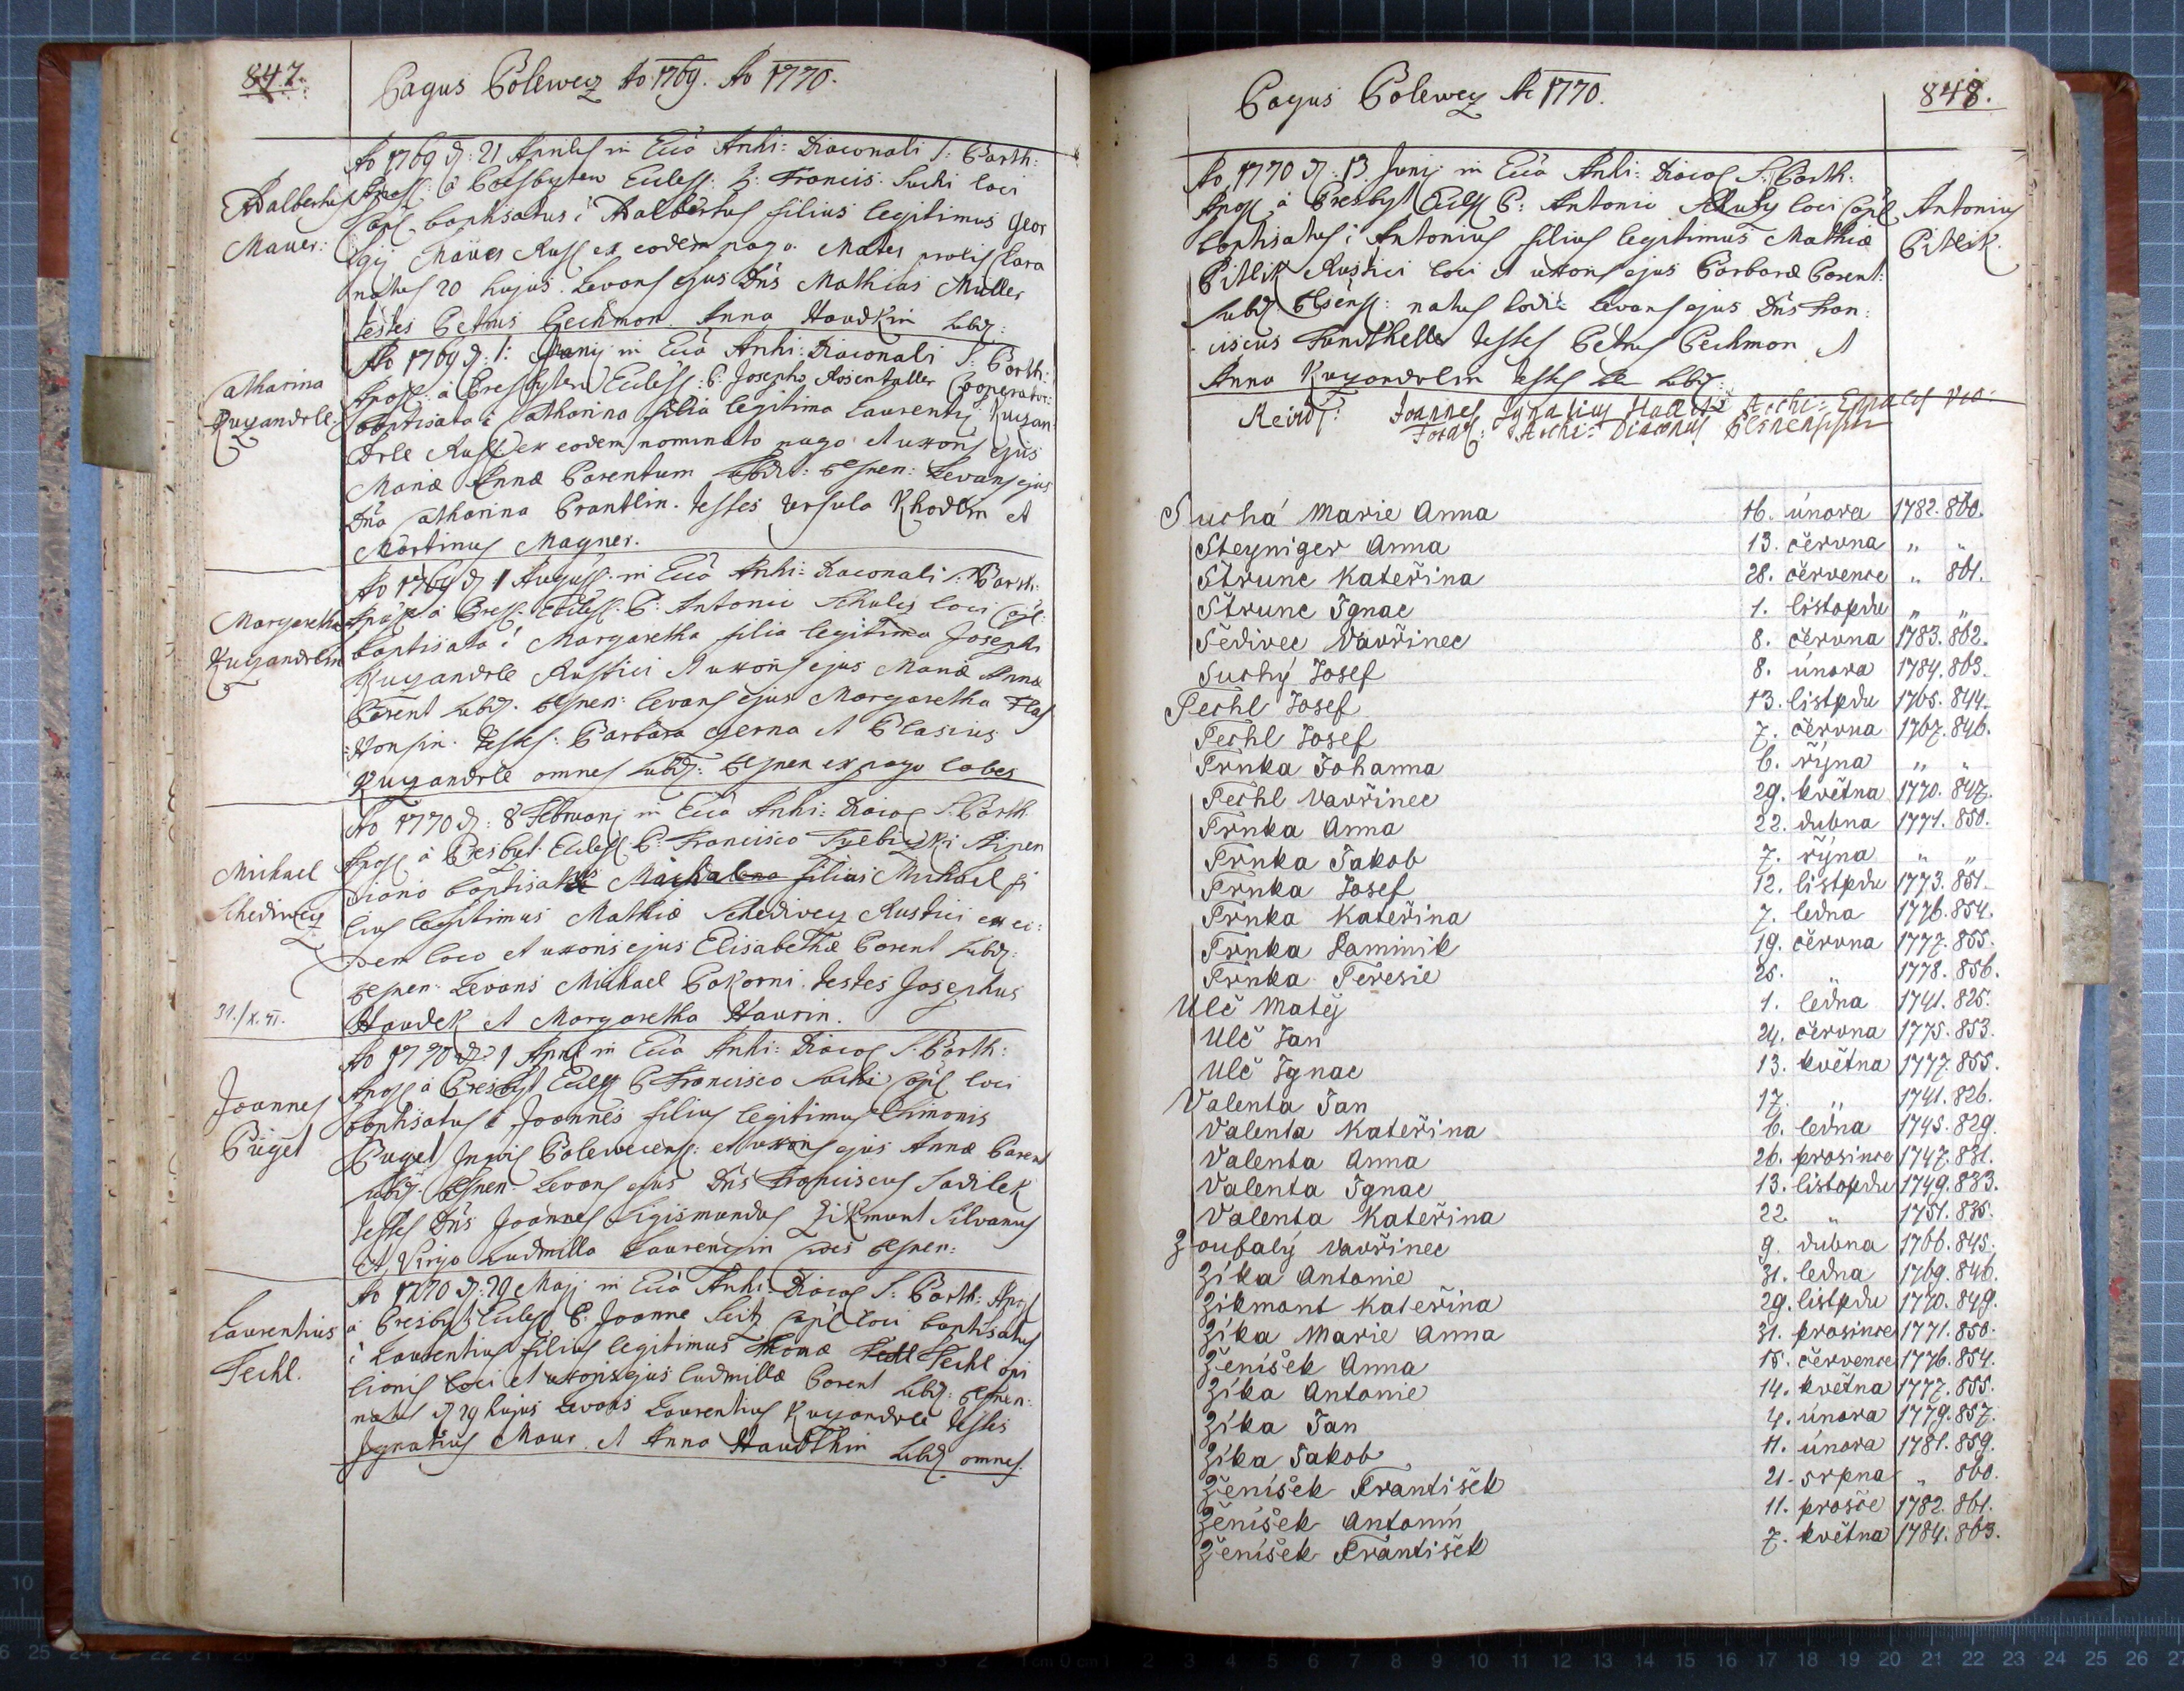 847.
Pagus Bolewecz Ao 1769. Ao 1770.
Adalbertus
Mauer:
Ao 1769 d: 21 Aprilis in Ecća Archi: Diaconali S: Barth:
Apost: à Presbytero Ecclesi: P: Francis. Suchi loci
Capl. baptisatus i Adalbertus filius legitimus Geor
gij Mauer Rust ex eodem pago. Mater prolis Clara
natus 20 hujus. Levans ejus Dnus Mathias Müller
testes Petrus Pechmon Anna Haudkin Subd:
Catharina
Kuzandrle.
Ao 1769 d: 1: Junij in Ecća Archi: Diaconali S: Barth:
Apost: à Presbytero Ecclesi: P: Josepho Rosentaller Cooperator:
baptisata i Catharina filia legitima Laurentij Kuzan
drle Rust: ex eodem nominato pago et uxoris ejus
Mariæ Annæ Parentum Subd: Pilsnen: Levans ejus
Dna Catharina Brantlin. testes Ursula Khodlin et
Martinus Magner.
Margaretha
Kuzandrlin
Ao 1769 d 1 August: in Ecća Archi: Diaconali S: Barth:
Apost: à Pres: Ecclesi: P: Antonio Schulz loci Capl:
baptisata i Margaretha filia legitima Josephi
Kuzandrle Rustici et uxoris ejus Mariæ Annæ
Parent subd. Pilsnen: levans ejus Margaretha
testes: Barbara Czerna et Blasius
Kuzandrle omnes subd: Pilsnen ex pago
Michael
Schediwecz
31./X.41.
Ao 1770 d: 8 Februarij in Ecća Archi: Diacol S. Barth
Apost à Presbyt: Ecclesi P: Francisco
baptisatus Michael fi
lius legitimus Mathiæ Schediwecz Rustici ex eo:
dem loco et uxoris ejus Elisabethæ Parent Subd:
Pilsnen: Levans Michael Pokorni. testes Josephus
Haudek et Margaretha Haurin.
Joannes
Puget
Ao 1770 d: 1 April in Ecća Archi: Diacol S: Barth:
Apost à Presbyt Ecclesi P Francisco Suchi Capl loci
baptisatus i Joannes filius legitimus Simonis
Puget Inquil Bolewecens: et uxoris ejus Annæ Parent
subd: Pilsnen Levans ejus Dnus Franciscus Sadilek
testes Dnus Joannes Sigismundus Zikmunt Silvanus
et Virgo Ludmilla Laurenczin Pilsnen:
Laurentius
Techl.
Ao 1770 d: 29 Maij in Ecća Archi: Diacol S: Barth: Apost
à Presbyt: Ecclesi P: Joanne Seitz Capl loci baptisatus
i Laurentius filius legitimus Thomæ Techl Techl opi
lionis loci et uxoris ejus Ludmillæ Parent Subd: Pilsnen:
natus d 29 hujus Levans Laurentius Kuzandrle testes
Ignatius Maur et Anna Haudkhin Subd omnes.
Pagus Bolewecz Ao 1770.
848.
Ao 1770 d: 13 Junij in Ecća Archi: Diacol S: Barth:
Apost à Presbyt Ecclesi P: Antonio Schulz loci Capl
baptisatus i Antonius filius legitimus Mathiæ
Pitlik Rustici loci et uxoris ejus Barbaræ Parent:
subd: Pilsens: natus hodie Levans ejus Dnus Fran:
ciscus testes Petrus Pechmon et
Anna Kuzandrlin
Antonius
Pitlik.
Joannes Ignatius
Archi: Diaconus Pilsnensis
Suchá Marie Anna 16. února 1782. 860.
Steyniger Anna 13. června „ „
Štrunc Kateřina 28. července „ 861.
Štrunc Ignac 1. listopdu „ „
Šedivec Vavřinec 8. června 1783. 862.
Suchý Josef 8. února 1784. 863.
Techl Josef 13. listpdu 1765. 844.
Techl Josef 7. června 1767. 846.
Trnka Johanna 6. řýna „ „
Techl Vavřinec 29. května 1770. 847.
Trnka Anna 22. dubna 1771. 850.
Trnka Jakob 7. řýna „ „
Trnka Josef 12. listpdu 1773. 851.
Trnka Kateřina 7. ledna 1776. 854.
Trnka Daminik 19. června 1777. 855.
Trnka Teresie 25. „ 1778. 856.
Ulč Matěj 1. ledna 1741. 825.
Ulč Jan 24. června 1775. 853.
Ulč Ignac 13. května 1777. 855.
Valenta Jan 17. „ 1741. 826.
Valenta Kateřina 6. ledna 1745. 829.
Valenta Anna 26. prosince 1747. 831.
Valenta Ignac 13. listopdu 1749. 833.
Valenta Kateřina 22. „ 1751. 835.
Zoufalý Vavřinec 9. dubna 1766. 845.
Zíka Antonie 31. ledna 1769. 846.
Zikmont Kateřina 29. listpdu 1770. 849.
Zíka Marie Anna 31. prosince 1771. 850.
Ženíšek Anna 15. července 1776. 854.
Zíka Antonie 14. května 1777. 855.
Zíka Jan 4. února 1779. 857.
Zíka Jakob 11. února 1781. 859.
Ženíšek František 21. srpna „ 860.
Ženíšek Antonín 11. prosce 1782. 861.
Ženíšek František 7. května 1784. 863.